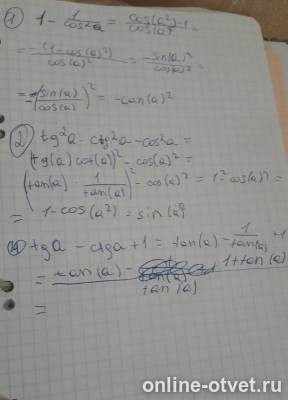 ① 1 - 1/cos²a = cos(a²)-1/cos(a)² =
= -(1-cos(a)²)/cos(a)² = -sin(a)²/cos(a)² =
= -(sin(a)/cos(a))² = -tan(a)²
② tg²a · ctg²a - cos²a =
(tg(a) cot(a))² - cos(a)² =
(tan(a) · 1/tan(a))² - cos(a)² = 1² cos(a)² =
= 1 - cos(a²) = sin(a)²
tga - ctga + 1 = tan(a) - 1/tan(a) + 1
= tan(a) - 1 + tan(a)/tan(a)
=
online-otvet.ru